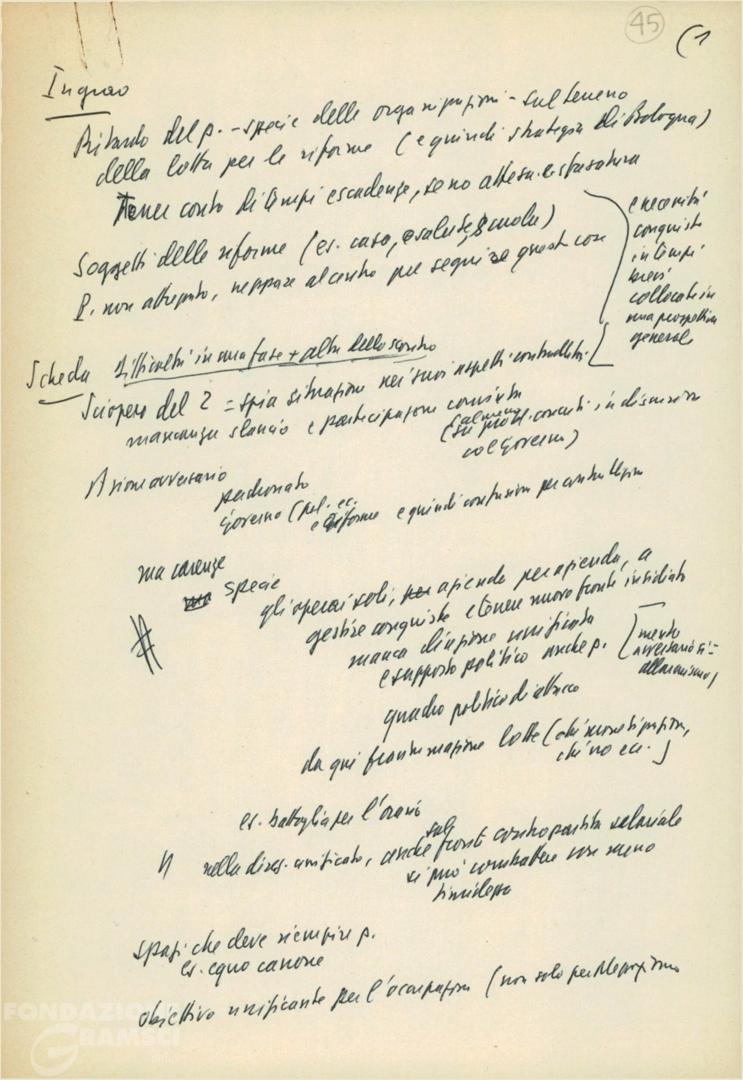 45
(1
Ingrao
Ritardo del p. - specie delle organizzazioni - sul terreno
della lotta per le riforme (e quindi strategia di Bologna)
Tener conto di tempi e scadenze, se no attesa e sfasatura
Soggetti delle riforme (es. casa, salute, scuola)
P. non attrezzato, neppure al centro per seguire queste cose
e necessità
conquiste
in tempi
brevi
collocate in
una prospettiva
generale
Scheda difficoltà in una fase + alta dello scontro
Sciopero del 2 = spia situazione nei suoi aspetti contraddit.
mancanza slancio e partecipazione convinta
(su concreti in discussione
col governo)
Azione avversario
padronato
governo (pol. ec.
e riforme e quindi confusione per
ma carenze
specie
gli operai soli, azienda per azienda, a
gestire conquiste e tenere nuovo fronte insidiato
manca direzione unificata
e supporto politico anche p.
[mento
avversario si =
allarmismo]
quadro politico di attacco
da qui frantumazione lotte (chi monetizzazione,
chi no ecc.)
es. battaglia per l'orario
nella direz. unificata, anche fronte contropartita salariale
si può combattere con meno
timidezza
spazi che deve riempire p.
es. equo canone
obiettivo unificante per l'occupazione (non solo per Mezzogiorno
FONDAZIONE
GRAMSCI